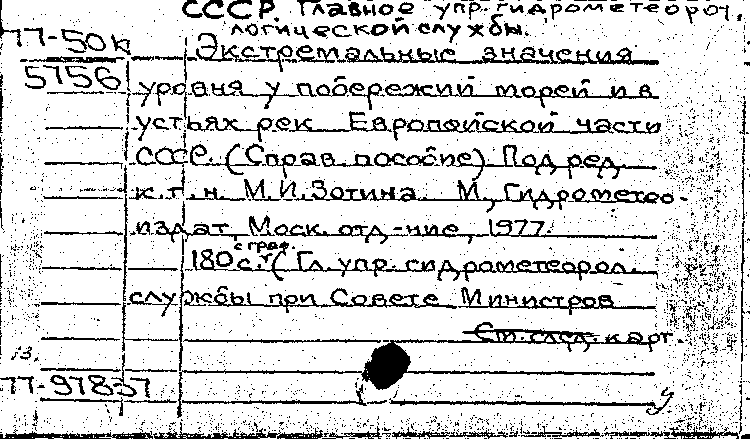 СССР. Главное упр. гидрометеорол.
логической службы.
77-50к Экстремальные значения
5756 уровня у побережий морей и в
устьях рек Европейской части
СССР. (Справ. пособие) Под ред.
к.т.н. М.И.Зотина. М., Гидрометео-
издат, Моск. отд-ние, 1977.
с граф.
180 с. (Гл. упр. гидрометеорол.
службы при Совете Министров
См. след. карт.
13.
77-97837
У